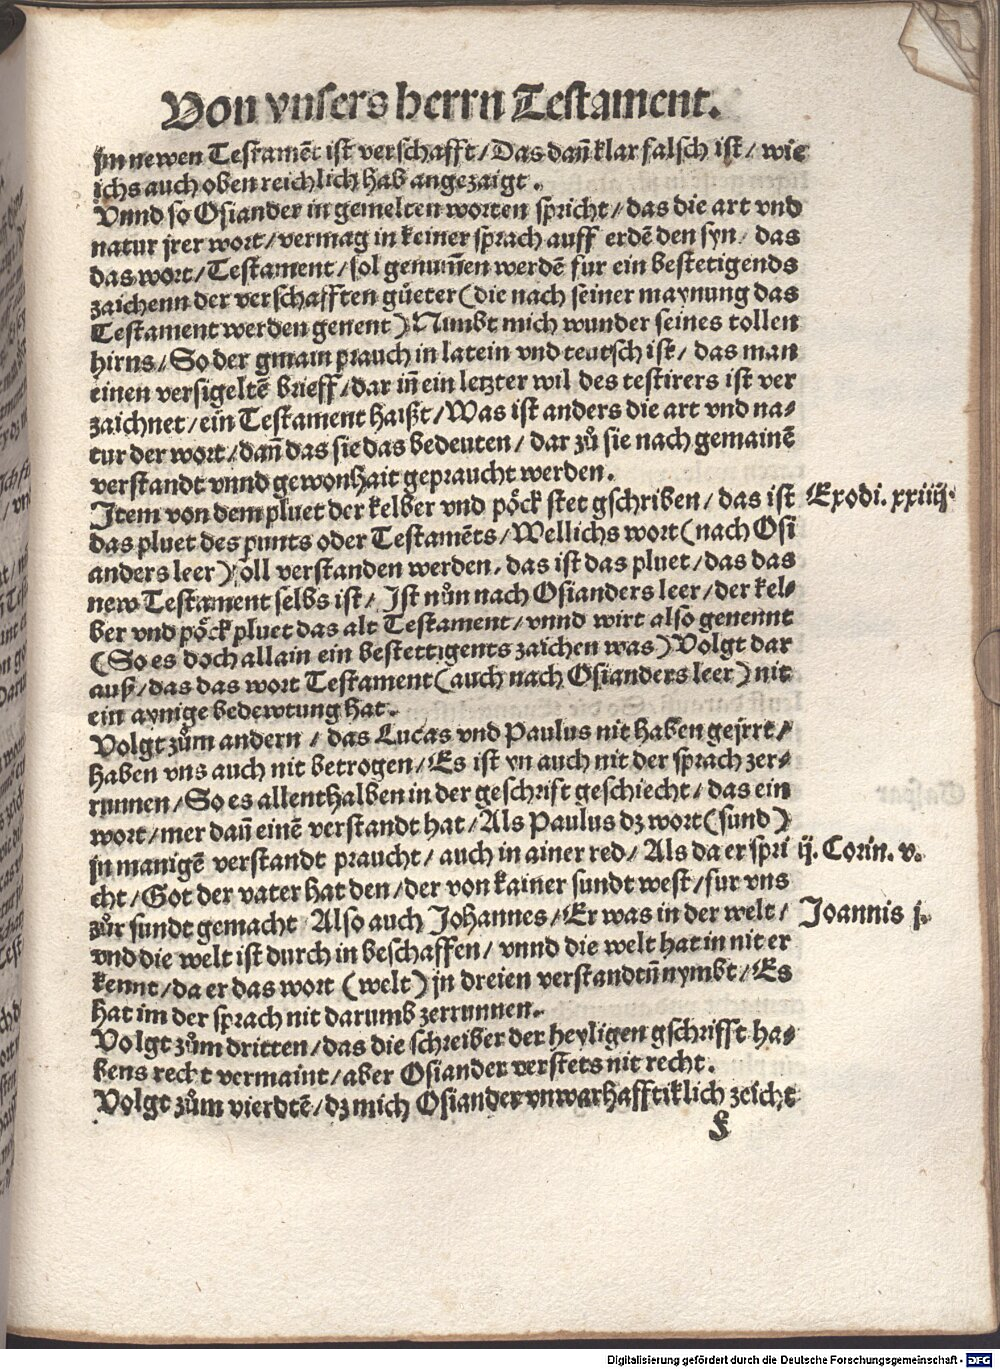 Von vnsers herrn Testament.
jm newen Testamēt ist verschafft/ Das dañ klar falsch ist/ wie
ichs auch oben reichlich hab angezaigt.
Vnnd so Osiander in gemelten worten spricht/ das die art vnd
natur jrer wort/ vermag in keiner sprach auff erdē den syn/ das
das wort/ Testament/ sol genum̃en werdē fur ein bestetigends
zaichenn der verschafften güeter (die nach seiner maynung das
Testament werden genent) Nimbt mich wunder seines tollen
hirns/ So der gmain prauch in latein vnd teutsch ist/ das man
einen versigeltē brieff/ dar iñ ein letzter wil des testirers ist ver
zaichnet/ ein Testament haißt/ Was ist anders die art vnd na⸗
tur der wort/ dañ das sie das bedeuten/ dar zů sie nach gemainē
verstandt vnnd gewonhait gepraucht werden.
Item von dem pluet der kelber vnd pöck stet gschriben/ das ist
Exodi. xxiiij.
das pluet des punts oder Testamēts/ Wellichs wort (nach Osi
anders leer) söll verstanden werden, das ist das pluet/ das das
new Testament selbs ist/ Ist nůn nach Osianders leer/ der kel⸗
ber vnd pöck pluet das alt Testament/ vnnd wirt also genennt
(So es doch allain ein bestettigents zaichen was) Volgt dar
auß/ das das wort Testament (auch nach Osianders leer) nit
ein aynige bedewtung hat.
Volgt zům andern/ das Lucas vnd Paulus nit haben gejrrt/
haben vns auch nit betrogen/ Es ist yn auch nit der sprach zer⸗
runnen/ So es allenthalben in der geschrift geschiecht/ das ein
wort/ mer dañ einē verstandt hat/ Als Paulus dz wort (sund)
jn manigē verstandt praucht/ auch in ainer red/ Als da er spri
ij. Corin. v.
cht/ Got der vater hat den/ der von kainer sundt west/ fur vns
zůr sundt gemacht Also auch Johannes/ Er was in der welt/
Joannis j.
vnd die welt ist durch in beschaffen/ vnnd die welt hat in nit er
kennt/ da er das wort (welt) jn dreien verstandtñ nymbt/ Es
hat im der sprach nit darumb zerrunnen.
Volgt zům dritten/ das die schreiber der heyligen gschrifft ha⸗
bens recht vermaint/ aber Osiander verstets nit recht.
Volgt zům vierdtē/ dz mich Osiander vnwarhafftiklich zeicht
f
Digitalisierung gefördert durch die Deutsche Forschungsgemeinschaft - DFG